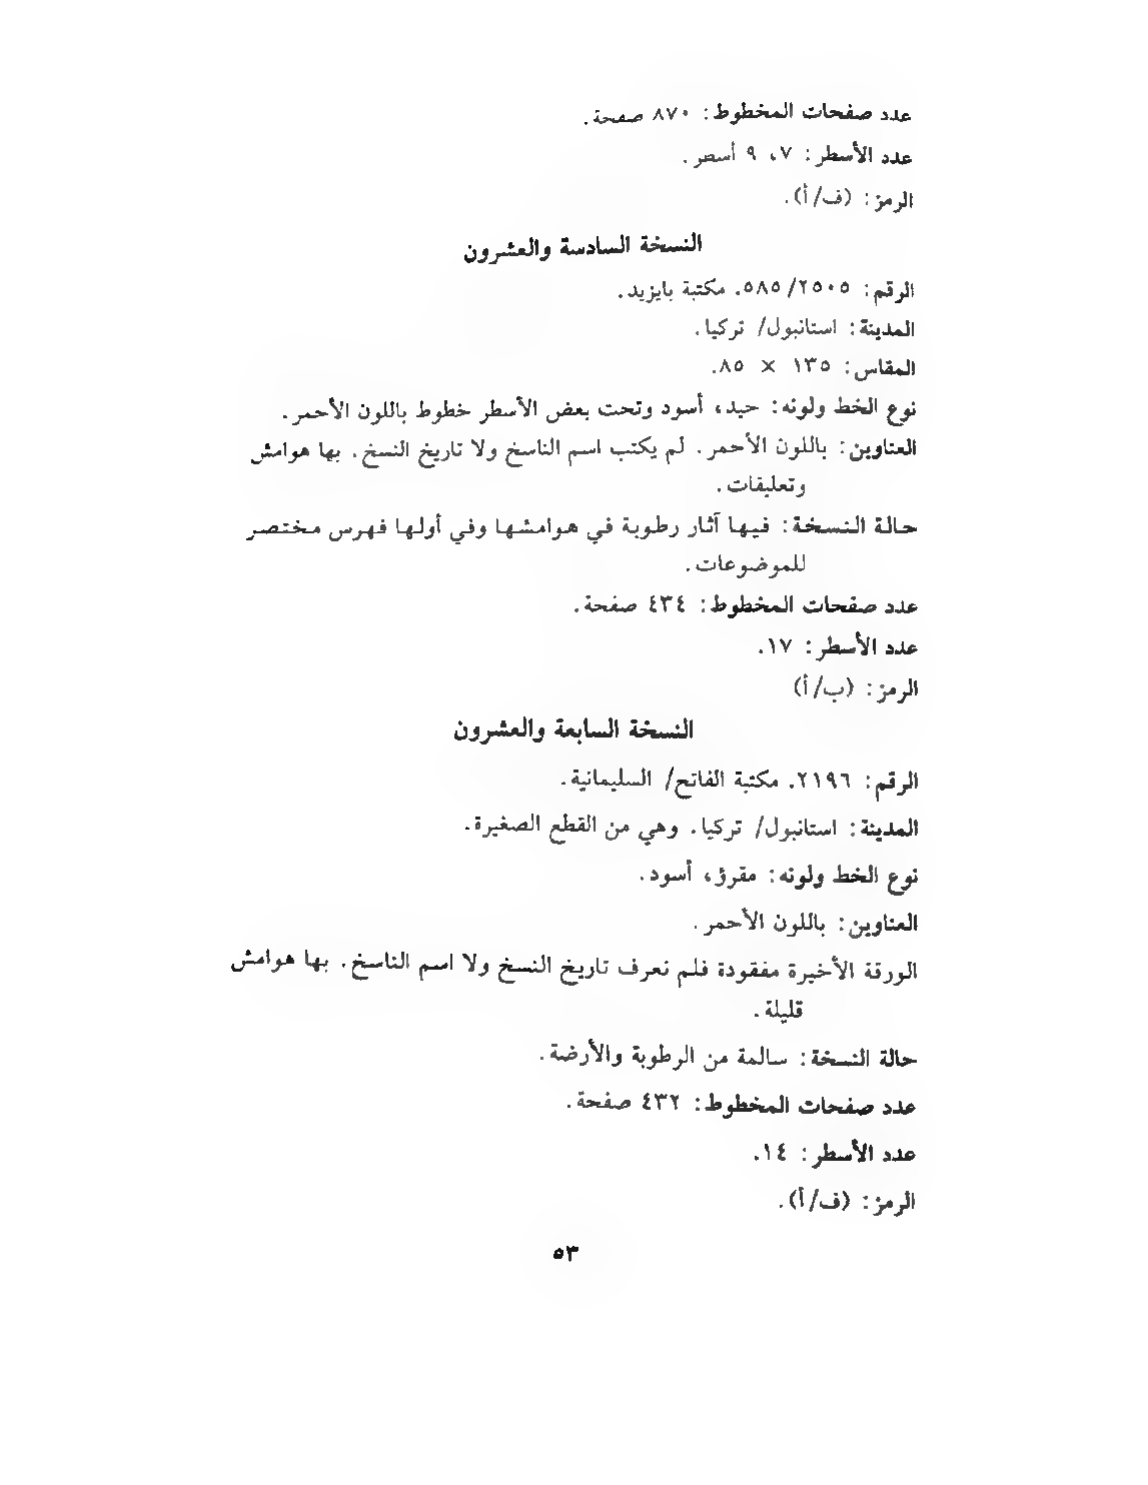 عدد صفحات المخطوط: ٨٧٠ صفحة.
عدد الأسطر: ٧، ٩ أسصر.
الرمز: (ف/أ).
النسخة السادسة والعشرون
الرقم: ٥٨٥/٢٥٠٥. مكتبة بايزيد.
المدينة: استانبول/ تركيا.
المقاس: ١٣٥ × ٨٥.
نوع الخط ولونه: حيد، أسود وتحت بعض الأسطر خطوط باللون الأحمر.
العناوين: باللون الأحمر. لم يكتب اسم الناسخ ولا تاريخ النسخ. بها هوامش
وتعليقات.
حالة النسخة: فيها آثار رطوبة في هوامشها وفي أولها فهرس مختصر
للموضوعات.
عدد صفحات المخطوط: ٤٣٤ صفحة.
عدد الأسطر: ١٧.
الرمز: (ب/أ)
النسخة السابعة والعشرون
الرقم: ٢١٩٦. مكتبة الفاتح/ السليمانية.
المدينة: استانبول/ تركيا. وهي من القطع الصغيرة.
نوع الخط ولونه: مقرؤ، أسود.
العناوين: باللون الأحمر.
الورقة الأخيرة مفقودة فلم نعرف تاريخ النسخ ولا اسم الناسخ. بها هوامش
قليلة.
حالة النسخة: سالمة من الرطوبة والأرضة.
عدد صفحات المخطوط: ٤٣٢ صفحة.
عدد الأسطر: ١٤.
الرمز: (ف/أ).
٥٣